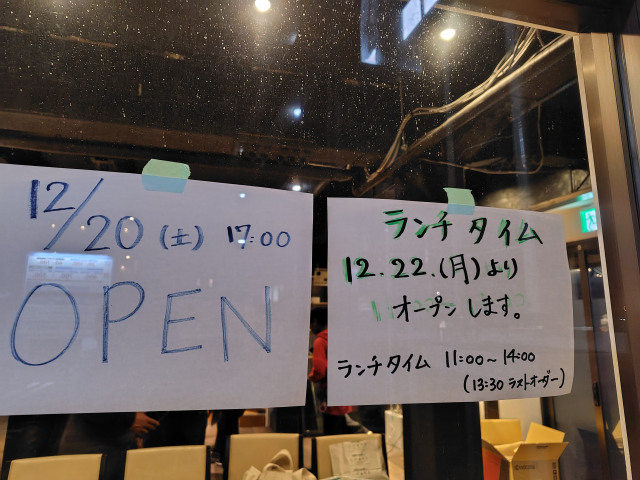 12/20 (土) 17:00
OPEN
ランチタイム
12.22.(月)より
オープンします。
ランチタイム 11:00~14:00
(13:30 ラストオーダー)